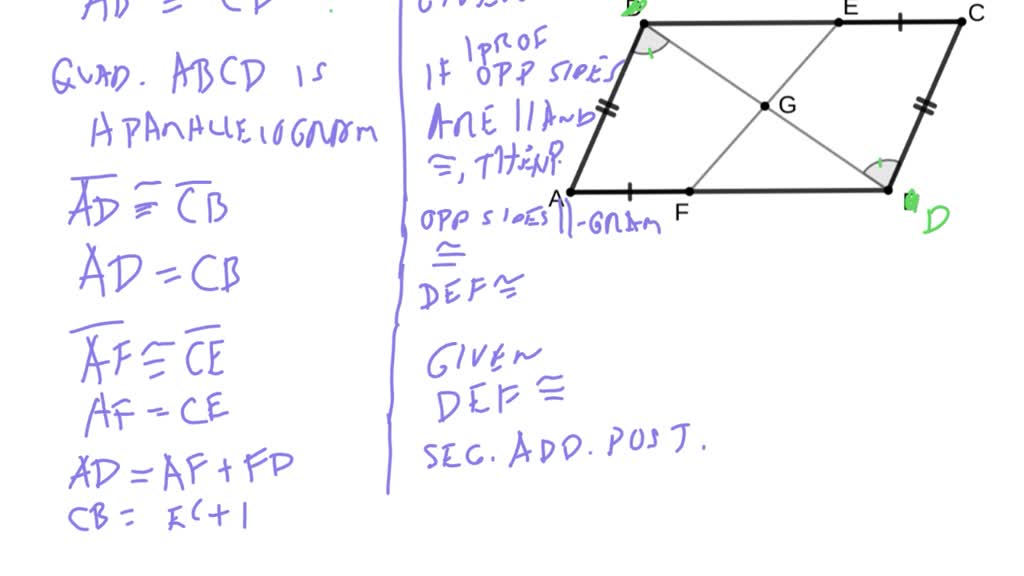 QUAD. ABCD IS
A PARALLELOGRAM
AD ≅ CB
AD = CB
AF ≅ CE
AF = CE
AD = AF + FD
CB = EC + |
1 PROF
IF OPP SIDES
ARE || AND
≅, THEN
OPP SIDES ||-GRAM
≅
DEF ≅
GIVEN
DEF ≅
SEG. ADD. POST.
E
C
G
A
F
D